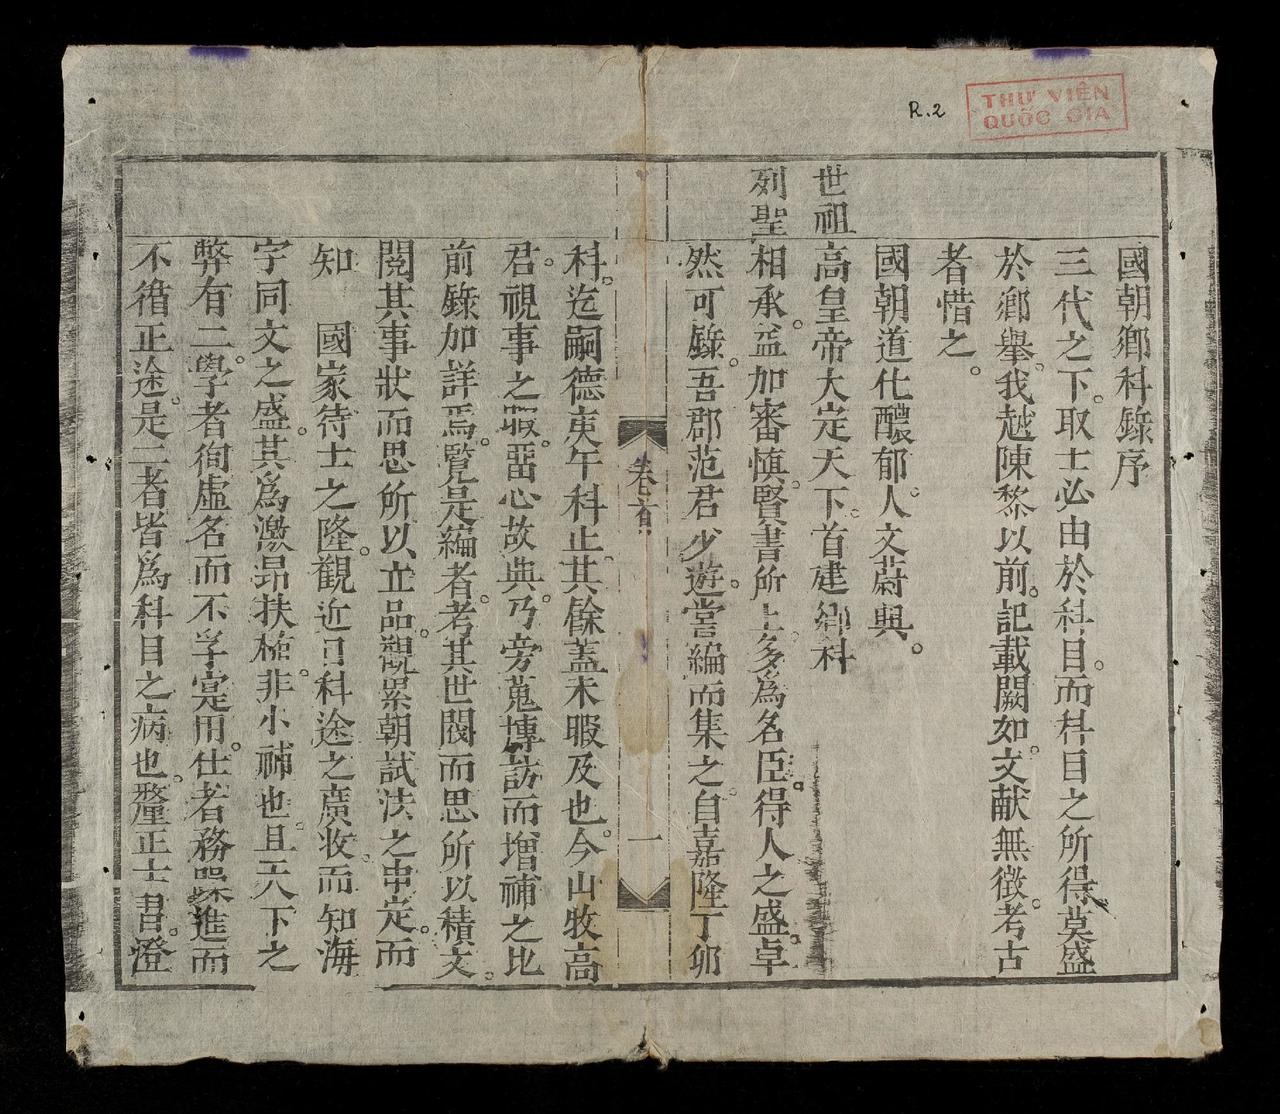 R.2
THƯ VIỆN
QUỐC GIA
國朝鄕科錄序
三代之下。取士必由於科目。而科目之所得莫盛
於鄕舉。我越陳黎以前。記載闕如。文献無徵。考古
者惜之。
國朝道化醲郁。人文蔚興。
世祖高皇帝大定天下。首建鄉科
列聖相承。益加審慎。賢書所上。多為名臣。得人之盛。卓
然可錄。吾郡范君少遊。嘗編而集之。自嘉隆丁卯
卷首
一
科。迄嗣德庚午科止。其餘蓋未暇及也。今山牧高
君。視事之暇。畱心故典。乃旁蒐博訪而增補之。比
前錄加詳焉。覽是編者。考其世閥而思所以積文。
閱其事狀而思所以立品。觀累朝試法之申定。而
知 國家待士之隆。觀近日科途之廣收。而知海
宇同文之盛。其爲激昂扶植。非小補也。且天下之
弊有二。學者徇虛名而不孚寔用。仕者務躁進而
不循正途。是二者皆爲科目之病也。釐正士習。澄